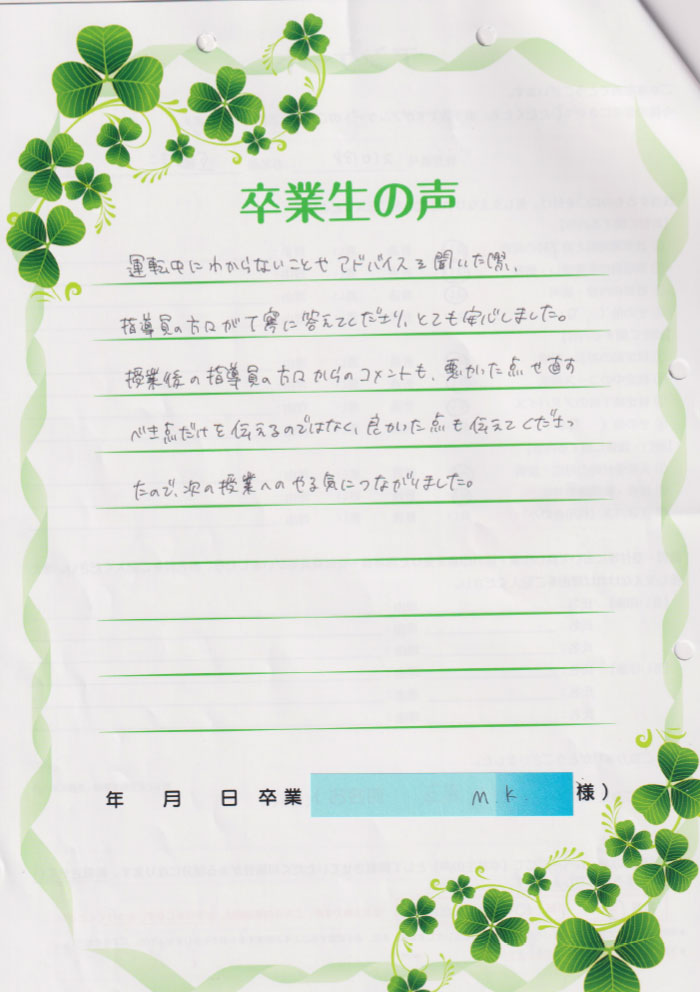 卒業生の声
運転中にわからないことやアドバイスを聞いた際、
指導員の方々が丁寧に答えてくださり、とても安心しました。
授業後の指導員の方々からのコメントも、悪かった点や直す
べき点だけを伝えるのではなく、良かった点も伝えてくださっ
たので、次の授業へのやる気につながりました。
年 月 日 卒業 M.K. 様)